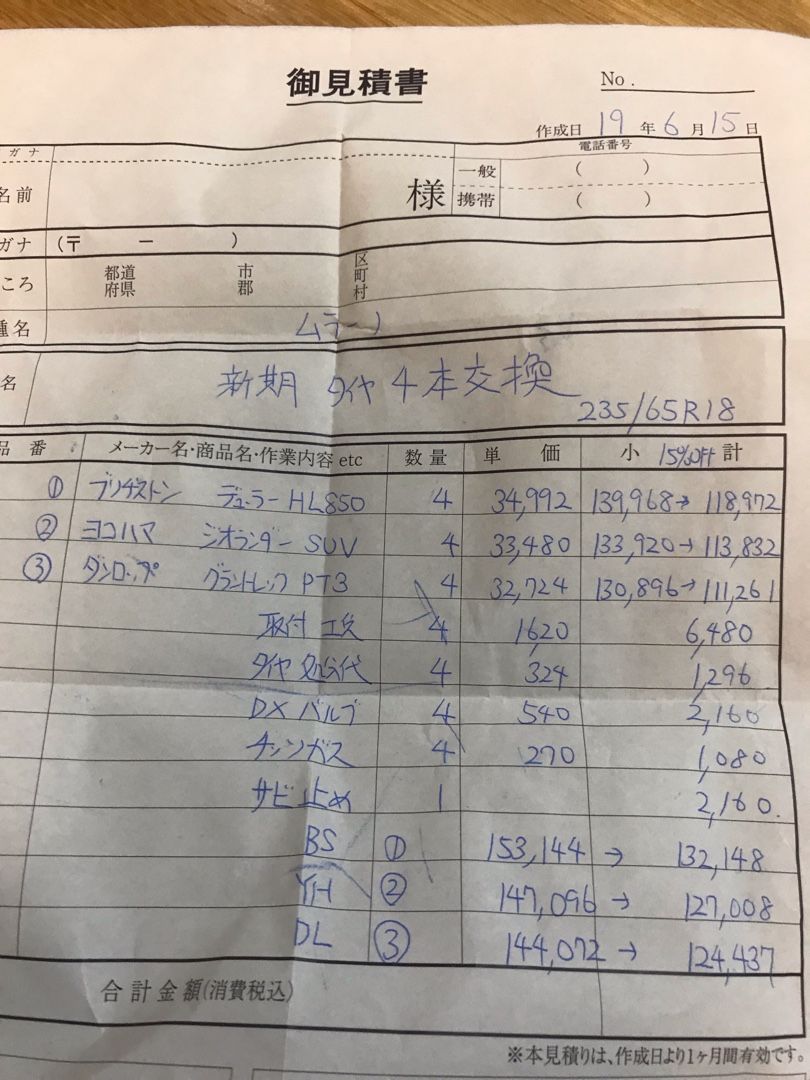 御見積書
No.
作成日 19 年 6 月 15 日
ガナ
電話番号
名前
様
一般 ( )
携帯 ( )
ガナ (〒 － )
ころ
都道府県
市郡
区町村
種名
ムラーノ
名
新期 タイヤ 4本交換
235/65R18
品番 メーカー名・商品名・作業内容 etc 数量 単価 小 15%Off 計
① ブリヂストン デューラー HL850 4 34,992 139,968→118,972
② ヨコハマ ジオランダー SUV 4 33,480 133,920→113,832
③ ダンロップ グラントレック PT3 4 32,724 130,896→111,261
取付工賃 4 1620 6,480
タイヤ処分代 4 324 1,296
DXバルブ 4 540 2,160
チッソガス 4 270 1,080
サビ止め 1 2,160.
BS ① 153,144 → 132,148
YH ② 147,096 → 127,008
DL ③ 144,072 → 124,437
合計金額(消費税込)
※本見積りは、作成日より1ヶ月間有効です。